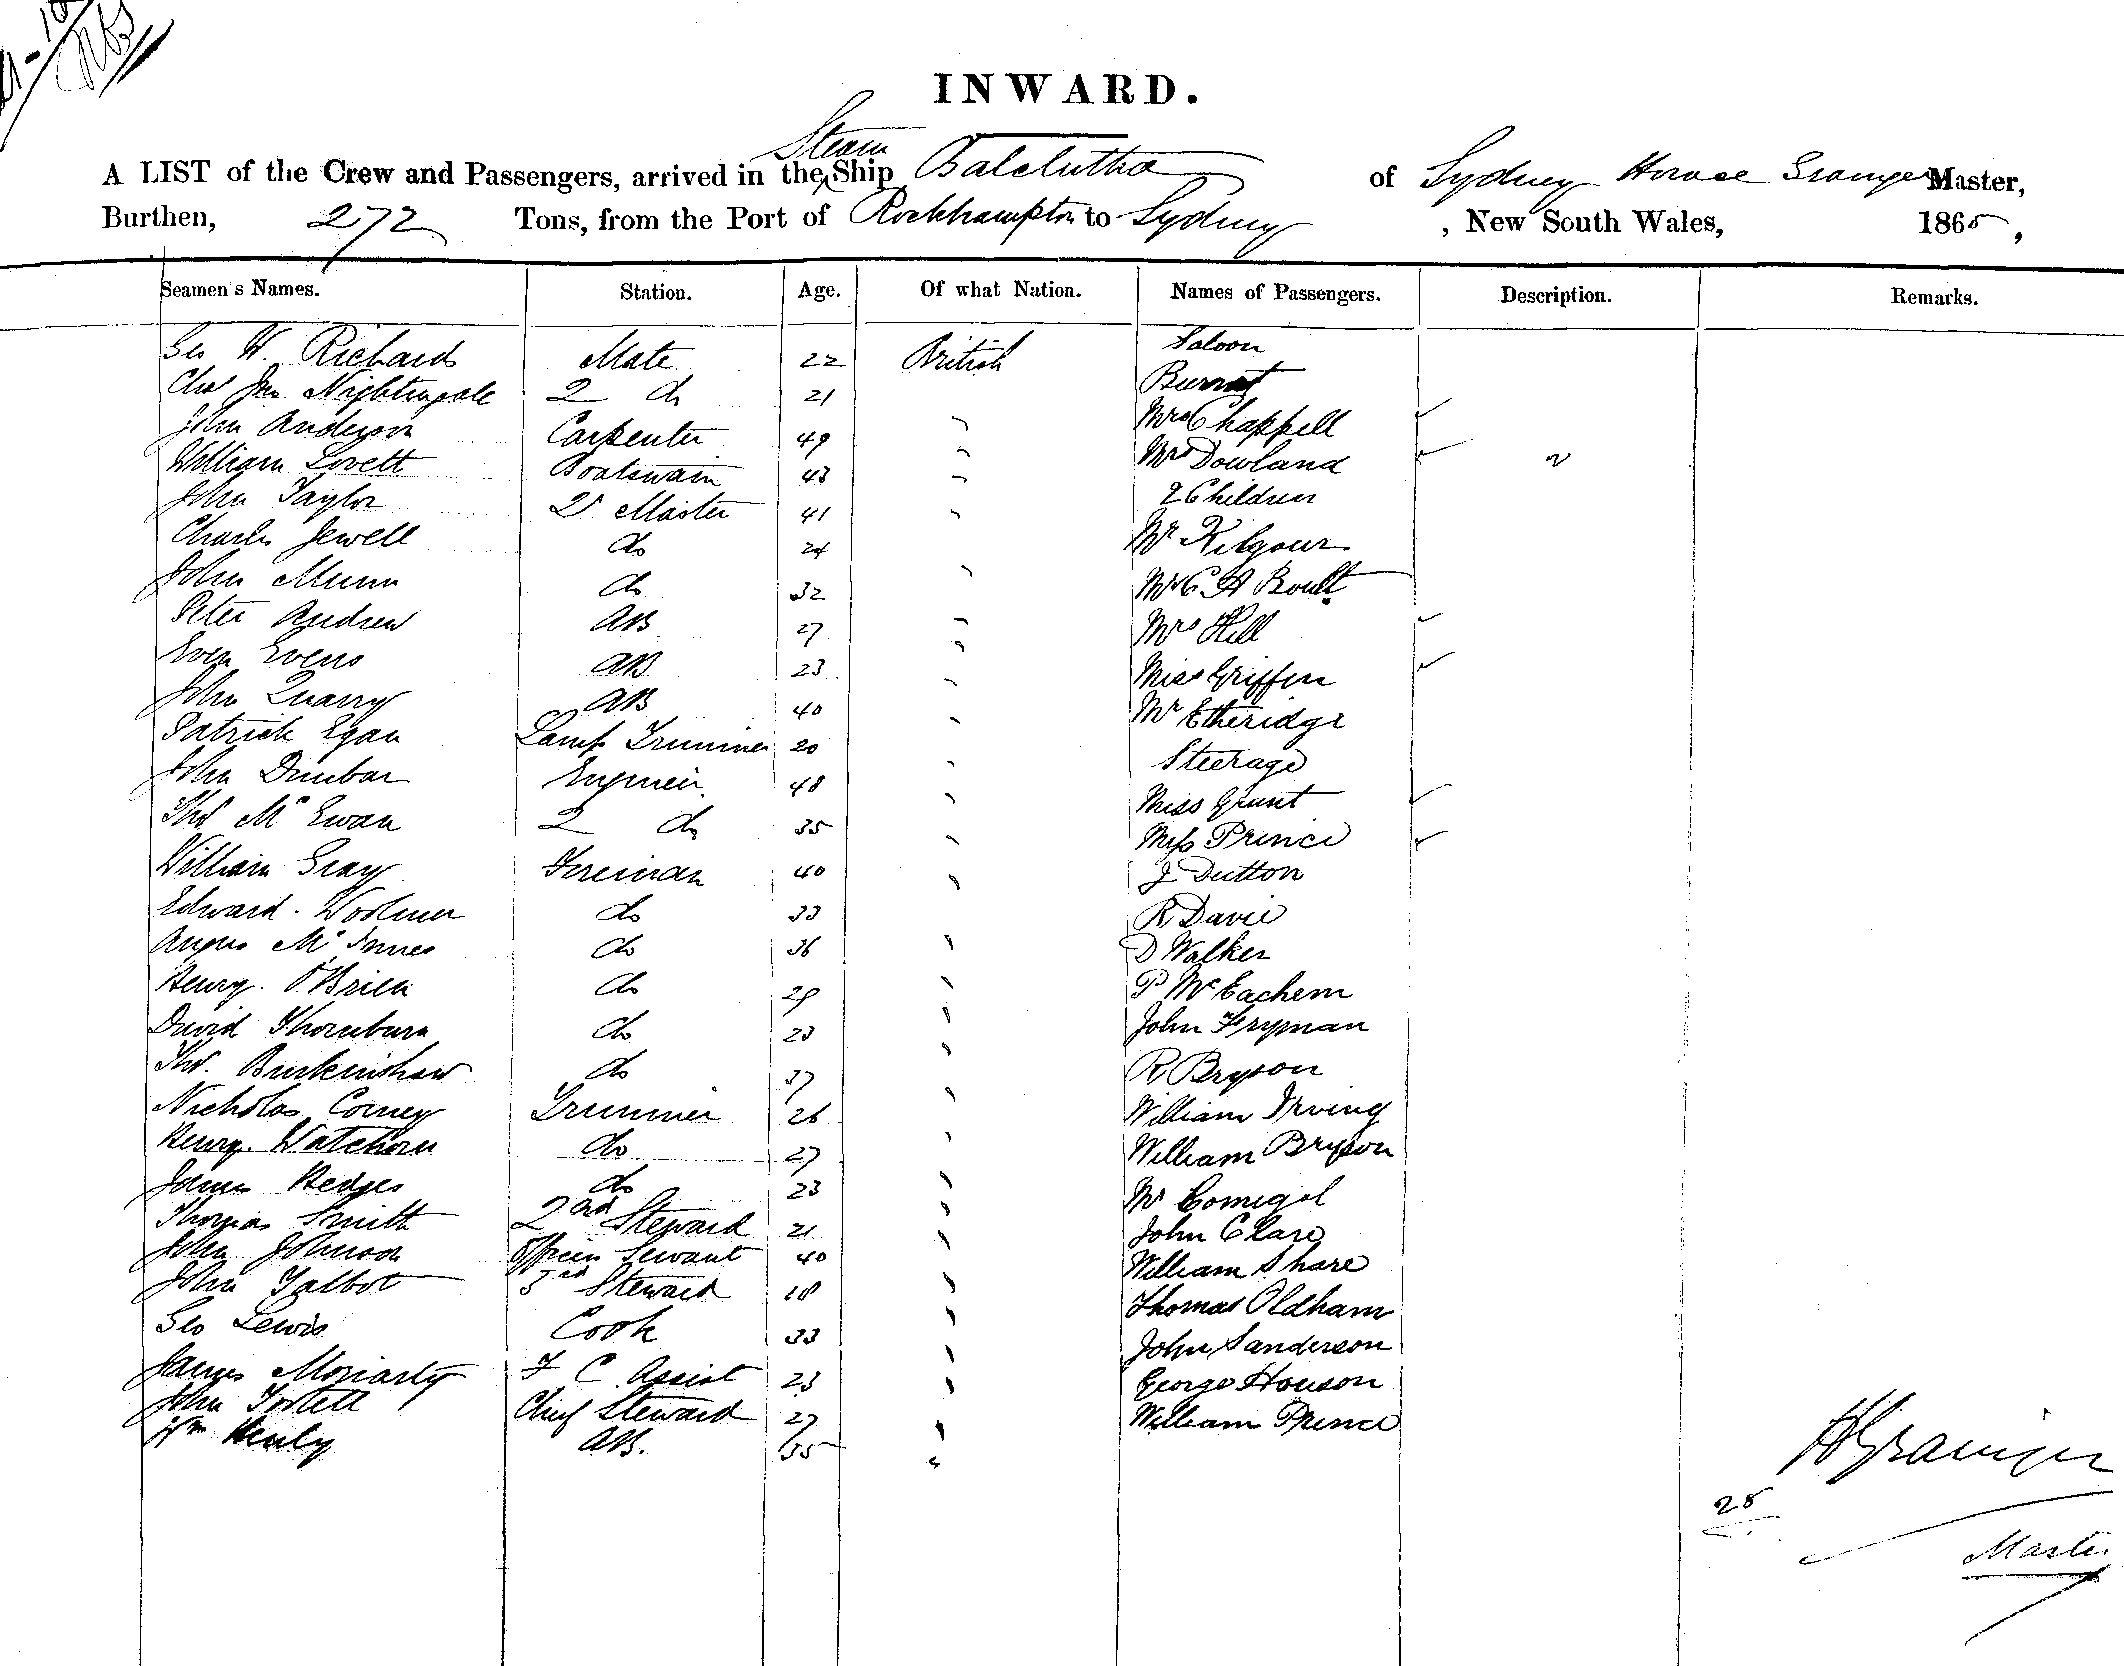 INWARD.
Steam
A LIST of the Crew and Passengers, arrived in the Ship Balclutha of Sydney Horace Grainger Master,
Burthen, 272 Tons, from the Port of Rockhampton to Sydney, New South Wales, 1865,
Seamen's Names. Station. Age. Of what Nation. Names of Passengers. Description. Remarks.
Geo W. Richards Mate 22 British Saloon
Chas Jno Nightingale 2 do 21
John Anderson Carpenter 49 Mrs Chappell
William Lovett Boatswain 43 Mrs Dowland 2
John Taylor Qr Master 41 2 Children
Charles Jewell do 24 Mr Kilgour
John Munn do 32 Mr C H Boult
Peter Andrew AB 27 Mrs Hill
Even Evens AB 23 Miss Griffin
John Quarry AB 40 Mr Etheridge
Patrick Egan Lamp Trimmer 20 Steerage
John Dunbar Engineer 48 Miss Grunt
Thos McEwan 2 do 35 Miss Prince
William Gray Fireman 40 J Dutton
Edward Woolmer do 33 R Davie
Angus McInnes do 36 D Walker
Henry O'Brien do 29 P McEachern
David Thornburn do 23 John Fryman
Thos. Burkinshaw do 37 R Bryson
Nicholas Comey Trimmer 26 William Irving
Henry Watchorn do 27 William Bryson
James Hedges do 23 Mr
Thomas Smith 2nd Steward 21 John Clare
John Johnson Officers Servant 40 William Share
John Talbot 3rd Steward 18 Thomas Oldham
Geo Lewis Cook 33 John Sanderson
James Moriarty F C Assist 23 George Houson
John Chief Steward 27 William Prince
Wm Henly AB. 35
H Grainger
28
Master